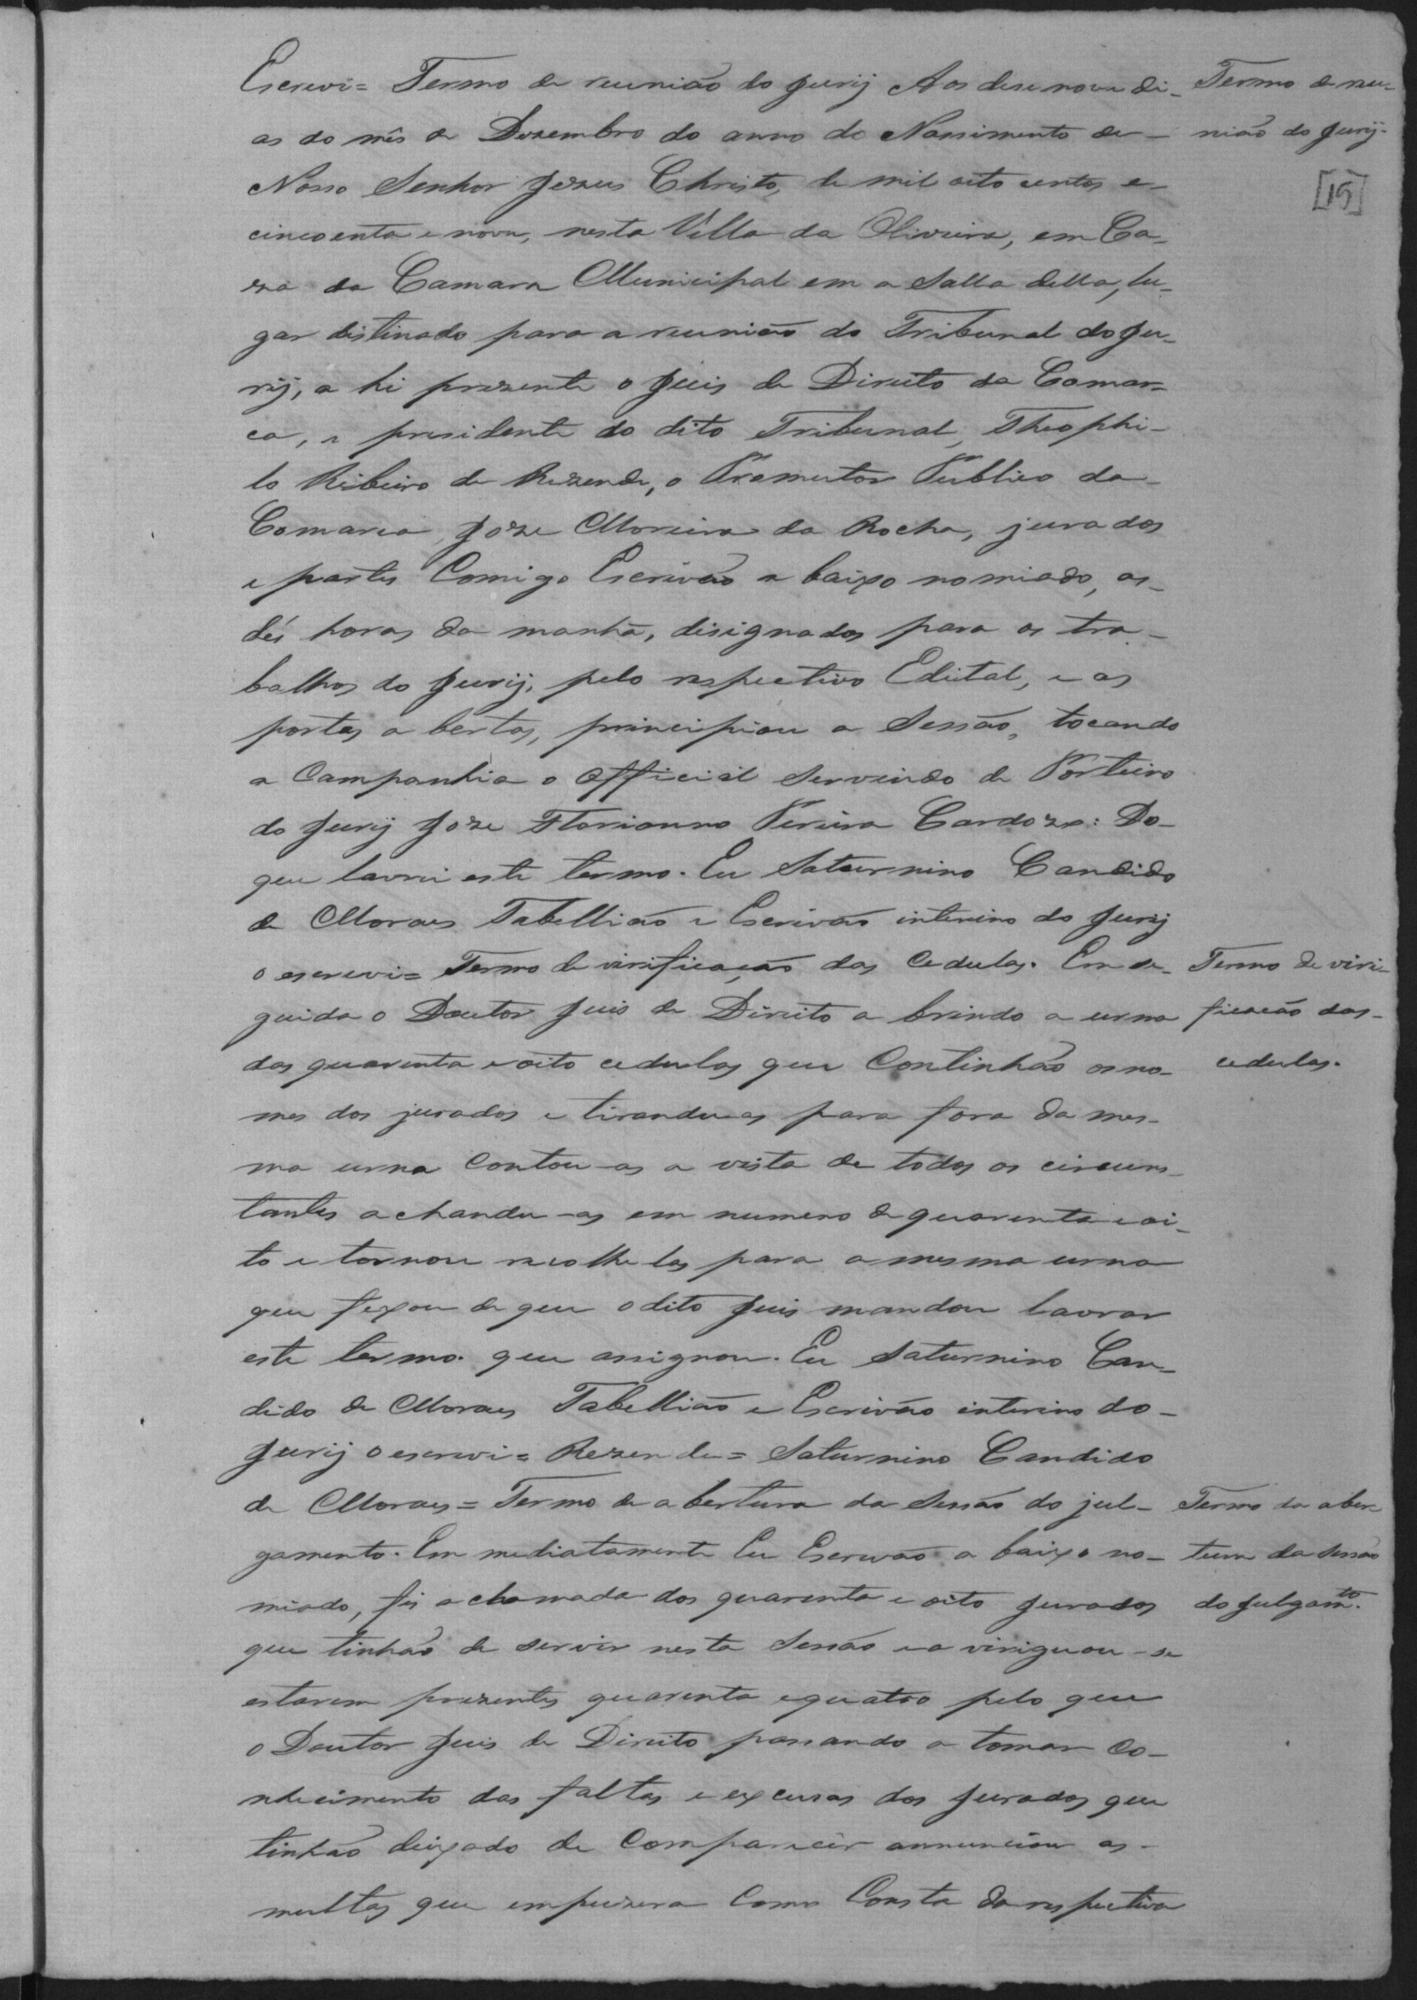 Escrevi = Termo de reunião do Jurij Aos desenove di-
as do mês de Dezembro do anno do Nassimento de
Nosso Senhor Jezus Christo, de mil oito centos e
cincoenta e nove, nesta Villa da Oliveira, em Ca-
za da Camara Municipal em a Salla della, lu-
gar distinado para a reunião do Tribunal do Ju-
rij, a hi prezente o Juis de Direito da Comar-
ca, e presidente do dito Tribunal, Theophi-
lo Ribeiro de Rezende, o Promutor Publico da
Comarca, Joze Moreira da Rocha, jurados
e partes Comigo Escrivão a baixo nomiado, as
dés horas da manhã, disignados para os tra-
balhos do Jurij, pelo respectivo Edital, e as
portas a bertas, principiou a Sessão, tocando
a Campanhia o Official Servindo de Porteiro
do Jurij Joze Florianno Pereira Cardozo: Do
que lavrei este termo. Eu Saturnino Candido
de Moraes Tabellião e Escrivão interino do Jurij
o escrevi = Termo de virificação das Cedulas. Em se-
guida o Doutor Juis de Direito a brindo a urna
das quarenta e oito cedulas que Continhão os no-
mes dos jurados e tirandu-as para fora da mes-
ma urna Contou-as a vista de todos os circuns-
tantes a chandu-as em numero de quarenta e oi-
to e tornou recolhelas para a mesma urna
que fexou de que o dito Juis mandou lavrar
este termo. que assignou. Eu Saturnino Can-
dido de Moraes Tabellião e Escrivão interino do
Jurij o escrevi = Rezende = Saturnino Candido
de Moraes = Termo de a bertura da Sessão do jul-
gamento. Em mediatamente Eu Escrivão a baixo no-
miado, fis a chamada dos quarenta e oito Jurados
que tinhão de servir nesta Sessão e a viriguou-se
estarem prezentes quarenta e quatro pelo que
o Doutor Juis de Direito passando a tomar Co-
nhecimento das faltas e excusas dos Jurados que
tinhão deixado de Comparecêr annunciou as
multas que empuzera Como Consta da respectiva
Termo de reu-
nião do Jurij.
[15]
Termo de viri-
ficacão das
cedulas.
Termo da aber-
tura da Sessão
do Julgamto.